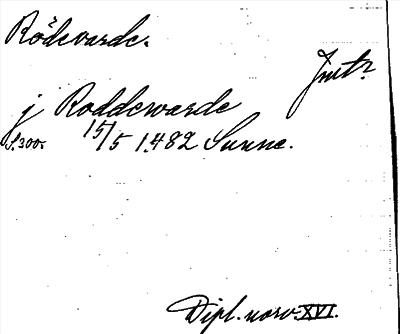 Rödevarde.
Jmtr
j Roddewarde
S.300. 15/5 1482 Sunne.
Dipl. norv. XVI.